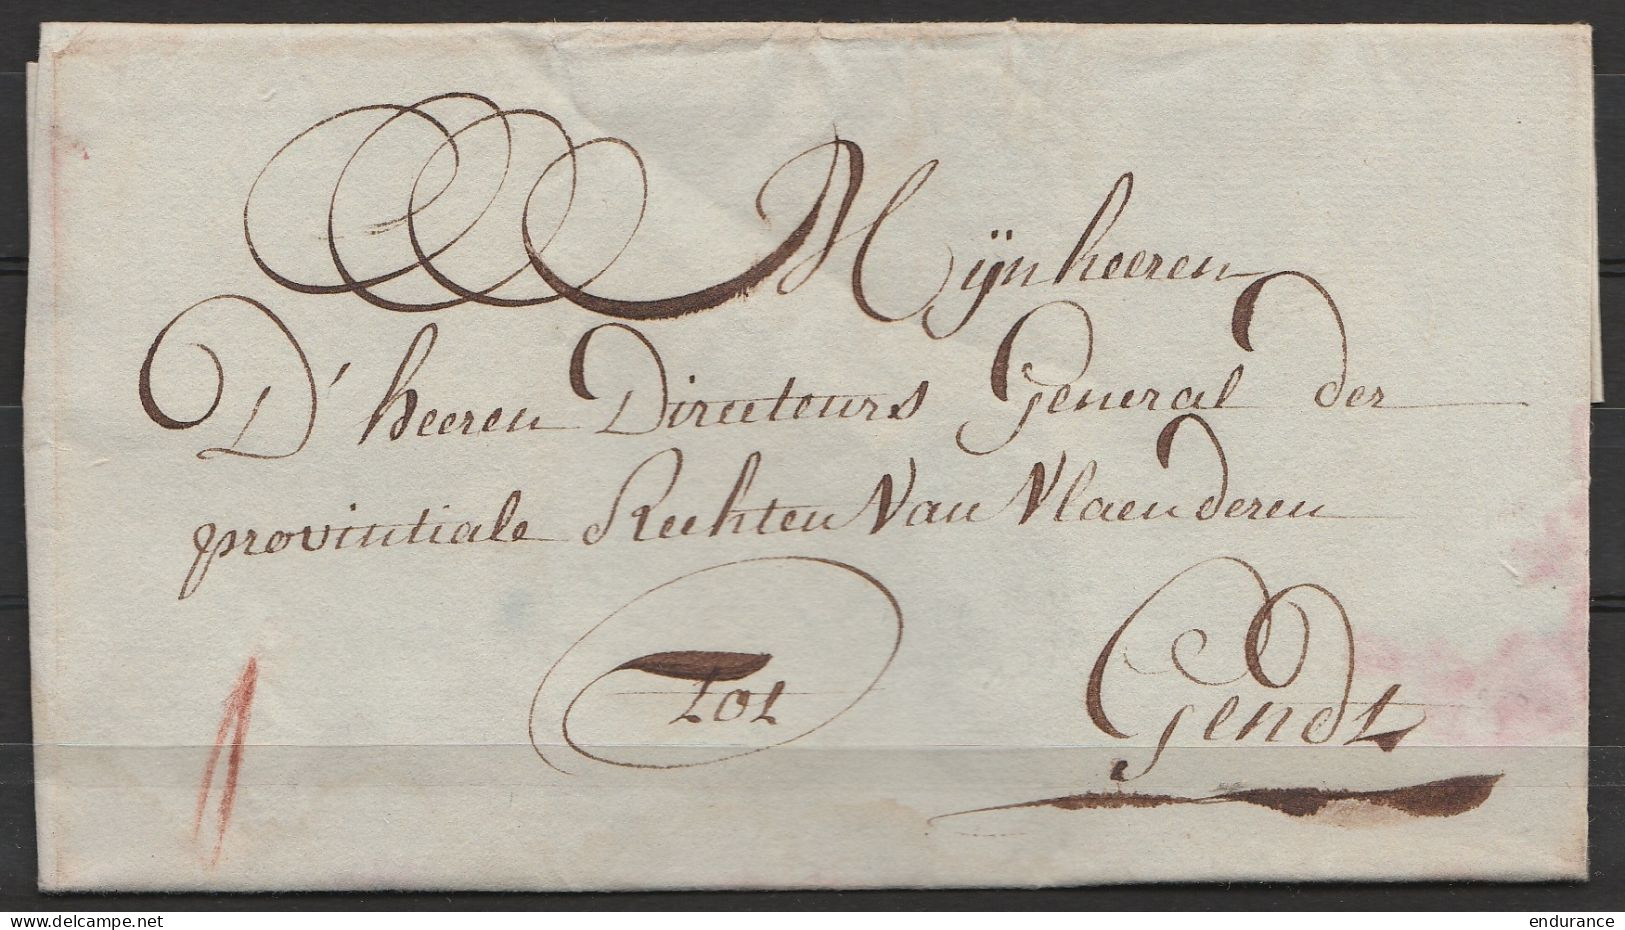 Mijnheeren
D'heeren Directeurs General der
provintiale Rechten Van Vlaenderen
Tot Gendt
delcampe.net
endurance